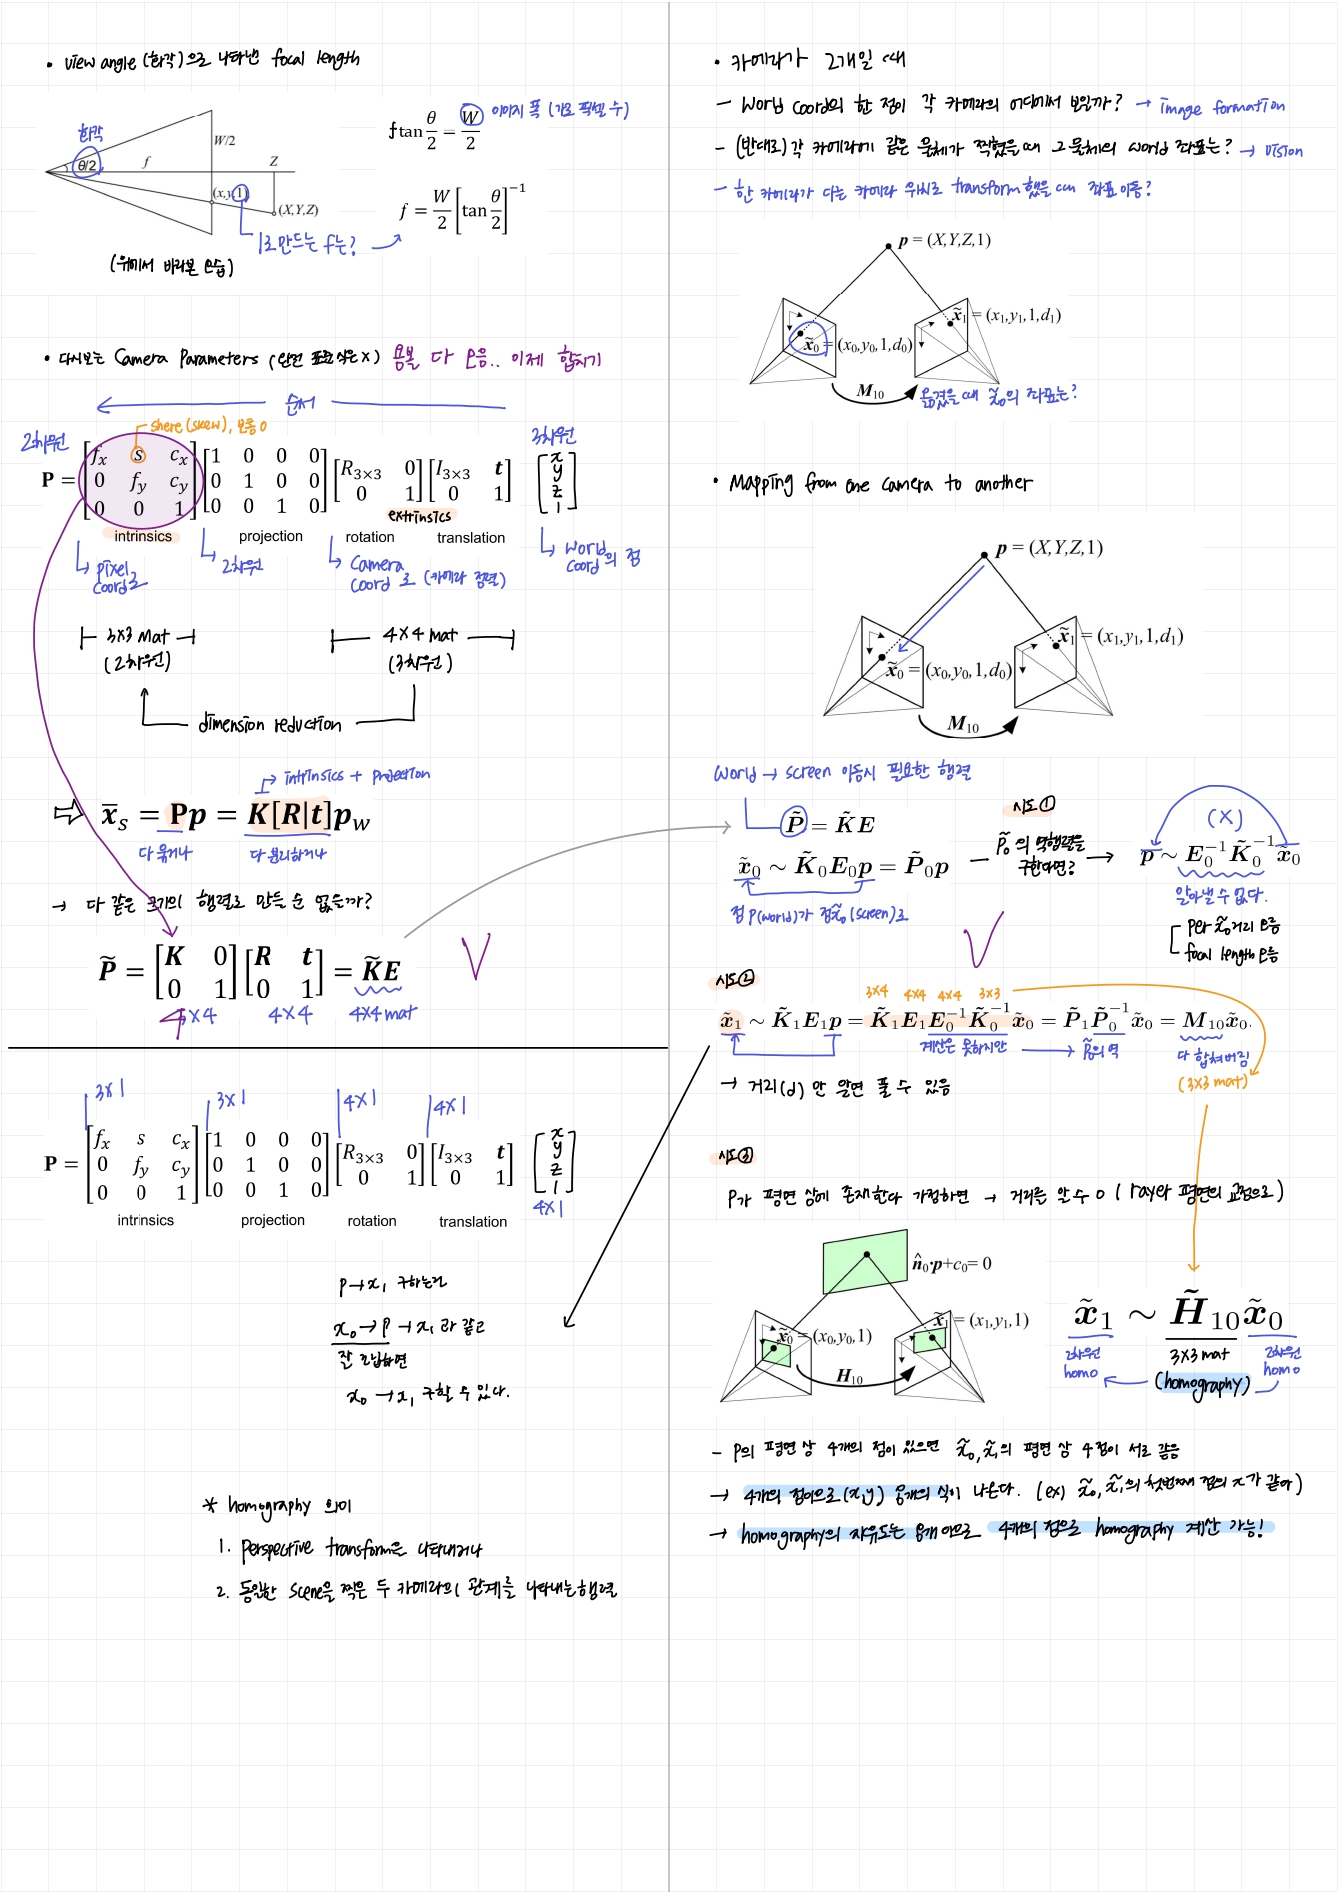 • view angle (화각)으로 나타낸 focal length
화각
θ/2
f
W/2
Z
(x,y,1)
(X,Y,Z)
1로 만드는 f는?
(위에서 바라본 모습)
f tan θ/2 = W/2
이미지 폭 (가로 픽셀 수)
f = W/2 [tan θ/2]⁻¹
• 다시보는 Camera Parameters (완전 표준식은 X) 용볼 다 모음.. 이제 합치기
순서
shere (skew), 보통 0
2차원
3차원
P = [f_x s c_x; 0 f_y c_y; 0 0 1] [1 0 0 0; 0 1 0 0; 0 0 1 0] [R₃ₓ₃ 0; 0 1] [I₃ₓ₃ t; 0 1] [x; y; z; 1]
extrinsics
intrinsics projection rotation translation
pixel coord로
2차원
Camera coord로 (카메라 정렬)
World coord의 점
3×3 mat
(2차원)
4×4 mat
(3차원)
dimension reduction
intrinsics + projection
⇨ x̄_s = Pp = K[R|t]p_w
다 묶거나
다 분리하거나
→ 다 같은 크기의 행렬로 만들 순 없을까?
P̃ = [K 0; 0 1] [R t; 0 1] = K̃E
4×4 4×4 4×4 mat
3×1 3×1 4×1 4×1
P = [f_x s c_x; 0 f_y c_y; 0 0 1] [1 0 0 0; 0 1 0 0; 0 0 1 0] [R₃ₓ₃ 0; 0 1] [I₃ₓ₃ t; 0 1] [x; y; z; 1]
4×1
intrinsics projection rotation translation
p→x₁ 구하는건
x₀→p→x₁ 과 같고
잘 조합하면
x₀→x₁ 구할 수 있다.
* homography 의미
1. perspective transform을 나타내거나
2. 동일한 scene을 찍은 두 카메라의 관계를 나타내는 행렬
• 카메라가 2개일 때
- World Coord의 한 점이 각 카메라의 어디에서 보일까? → image formation
- (반대로) 각 카메라에 같은 물체가 찍혔을 때 그 물체의 world 좌표는? → vision
- 한 카메라가 다른 카메라 위치로 transform 했을 때 좌표 이동?
p = (X,Y,Z,1)
x̃₁ = (x₁,y₁,1,d₁)
x̃₀ = (x₀,y₀,1,d₀)
M₁₀
옮겼을 때 x̃₀의 좌표는?
• Mapping from one camera to another
p = (X,Y,Z,1)
x̃₁ = (x₁,y₁,1,d₁)
x̃₀ = (x₀,y₀,1,d₀)
M₁₀
World → screen 이동시 필요한 행렬
P̃ = K̃E
x̃₀ ∼ K̃₀E₀p = P̃₀p
점 p(world)가 점 x̃₀(screen)로
시도①
P̃₀의 역행렬을
구한다면?
(X)
p ∼ E₀⁻¹K̃₀⁻¹x̃₀
알아낼 수 없다.
per x̃₀ 거리 모름
focal length 모름
시도②
3×4 4×4 4×4 3×3
x̃₁ ∼ K̃₁E₁p = K̃₁E₁E₀⁻¹K̃₀⁻¹x̃₀ = P̃₁P̃₀⁻¹x̃₀ = M₁₀x̃₀.
계산은 못하지만 → P̃₀의 역
다 합쳐버림
(3×3 mat)
→ 거리(d)만 알면 풀 수 있음
시도③
P가 평면 상에 존재한다 가정하면 → 거리를 알 수 O (ray와 평면의 교점으로)
n̂₀·p+c₀= 0
x̃₁ = (x₁,y₁,1)
x̃₀ = (x₀,y₀,1)
H₁₀
x̃₁ ∼ H̃₁₀x̃₀
2차원
homo
3×3 mat
(homography)
2차원
homo
- P의 평면 상 4개의 점이 있으면 x̃₀, x̃₁의 평면 상 4점이 서로 같음
→ 4개의 점이므로 (x,y) 8개의 식이 나온다. (ex) x̃₀, x̃₁의 첫번째 점의 x가 같아)
→ homography의 자유도는 8개 이므로 4개의 점으로 homography 계산 가능!